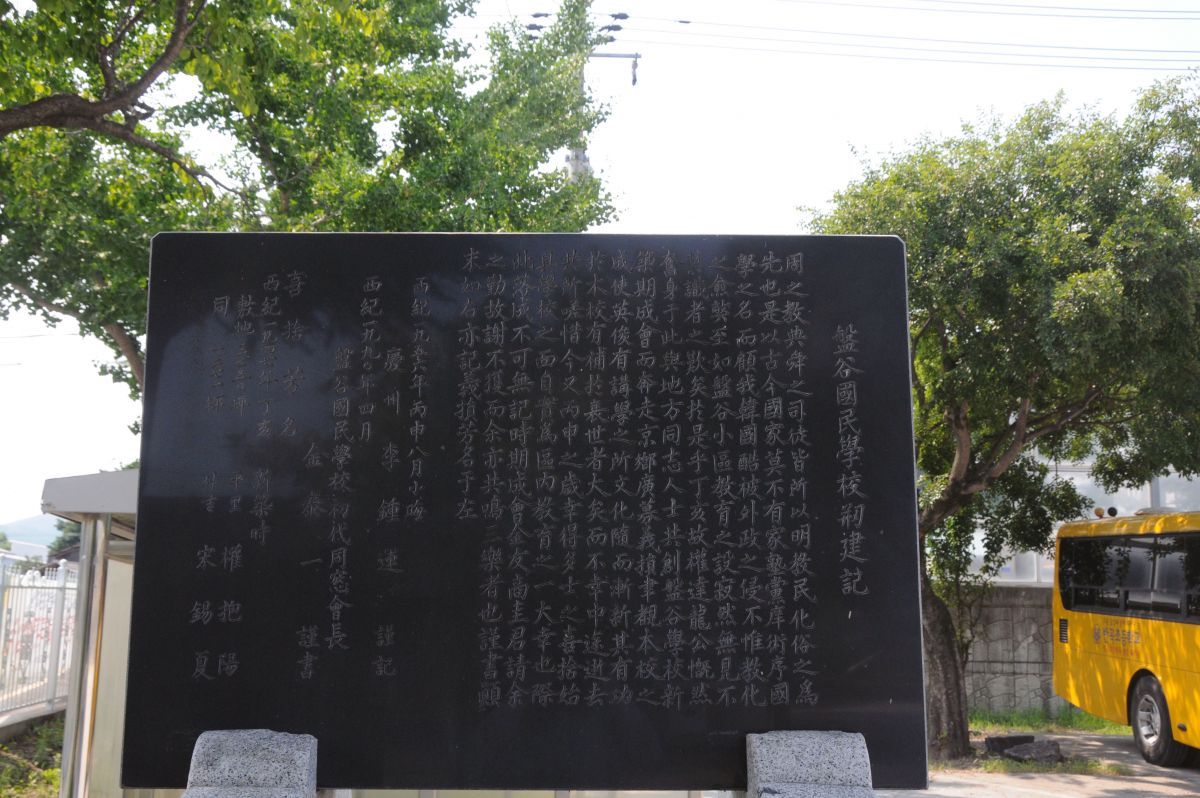 盤谷國民學校刱建記
周之敎典舜之司徒皆所以明敎民化俗之爲
先也是以古今國家莫不有家塾黨庠術序國
學之名而顧我韓國酷被外政之侵不惟敎化
之 至如盤谷小區敎育之設寂然無見不
識者之歎矣於是乎丁亥故權達龍公慨然
奮身于此與地方同志人士共創盤谷學校新
築期成會而奔走京鄕廣募義捐聿觀本校之
成使英俊有講學之所文化隨而漸新其有功
於本校有補於衰世者大矣而不幸中途逝去
共所嗟惜今又丙申之歲幸得多士之喜捨始
具學校之面目實爲區內敎育之一大幸也際
此落成不可無記時期成會金友尙圭君請余
之勤故謝不獲而余亦共鳴三樂者也謹書顚
末如右亦記義捐芳名于左
西紀一九五六年丙申八月小晦
慶州 李鍾連 謹記
西紀一九九〇年四月
盤谷國民學校初代同窓會長
金泰一 謹書
喜捨芳名
西紀一九四七年丁亥 新築時
敷地 坪 權抱陽
司 坪 宋錫夏
반곡초등학교